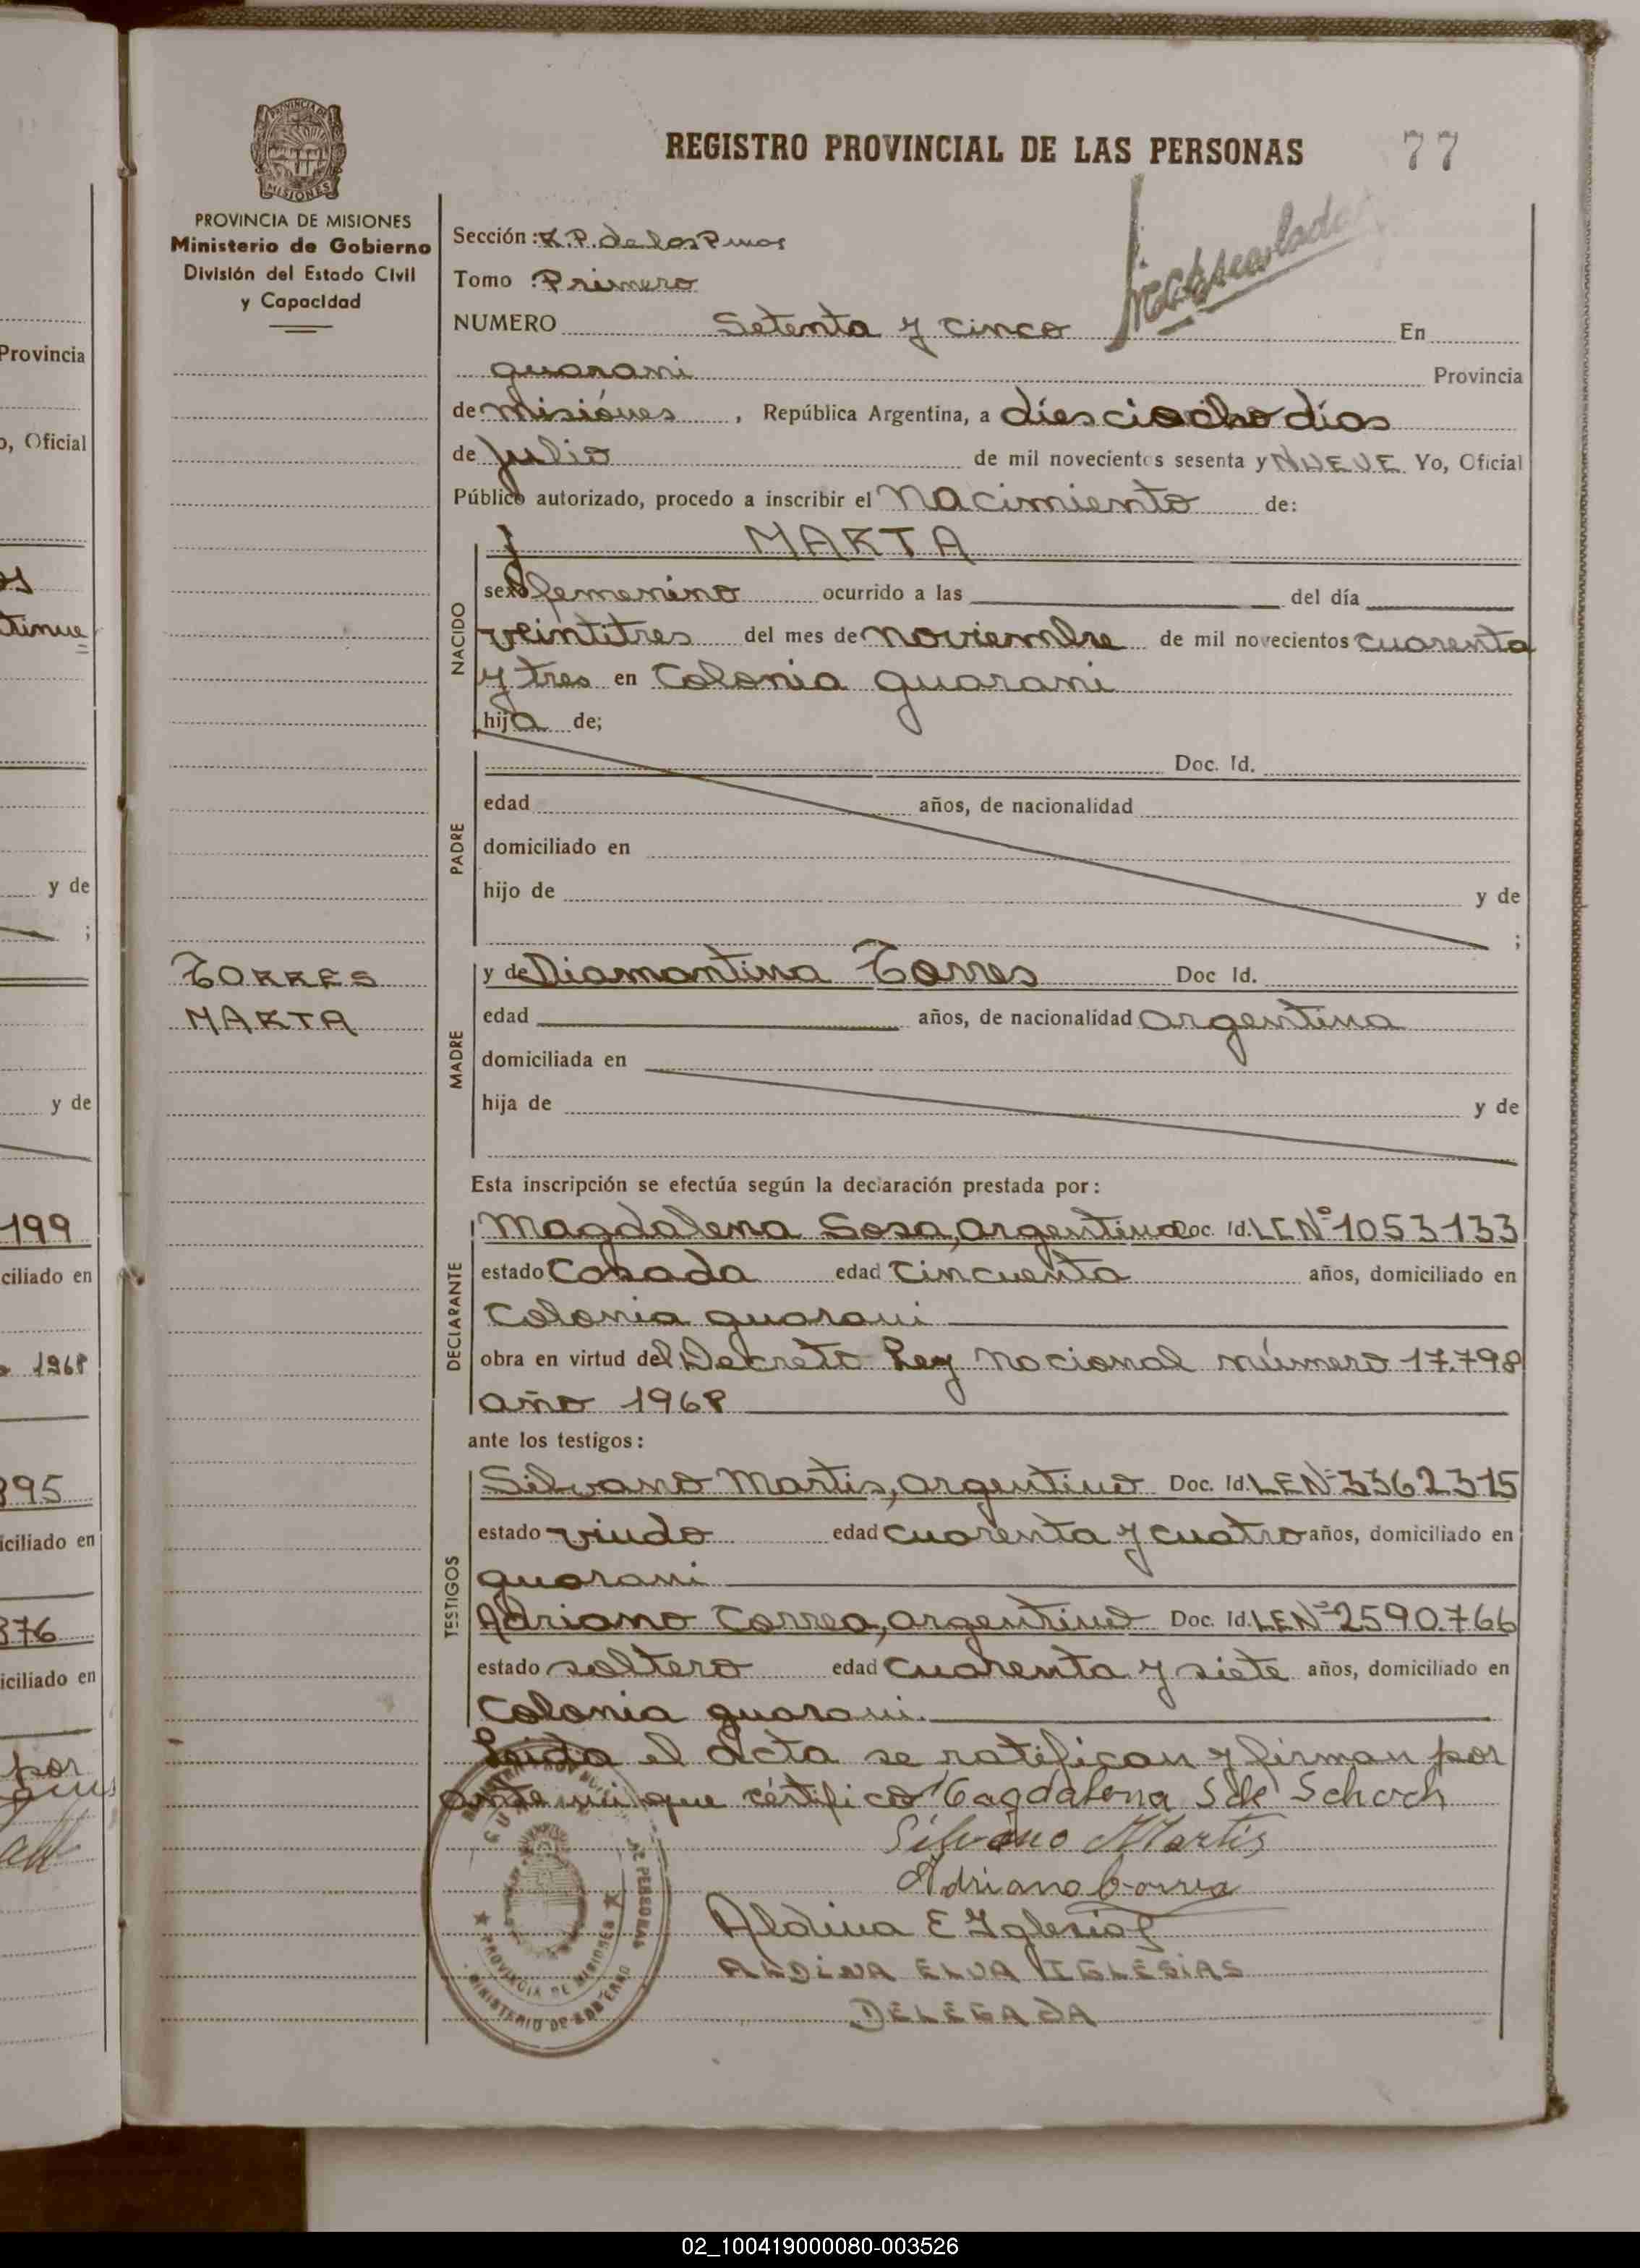 REGISTRO PROVINCIAL DE LAS PERSONAS 77
PROVINCIA DE MISIONES
Ministerio de Gobierno
División del Estado Civil
y Capacidad
Sección: de los Pinos
Tomo: Primero
NUMERO Setenta y cinco En
guarani Provincia
de misiónes, República Argentina, a diesciocho días
de Julio de mil novecientos sesenta y NUEVE Yo, Oficial
Público autorizado, procedo a inscribir el Nacimiento de:
MARTA
NACIDO
sexo femenino ocurrido a las del día
veintitres del mes de noviembre de mil novecientos cuarenta
y tres en Colonia guarani
hija de;
Doc. Id.
edad años, de nacionalidad
PADRE
domiciliado en
hijo de y de
;
TORRES
MARTA
y de Diamantina Torres Doc Id.
edad años, de nacionalidad argentina
MADRE
domiciliada en
hija de y de
Esta inscripción se efectúa según la declaración prestada por:
Magdalena Sosa, argentina Doc. Id. LCNº 1053133
estado Casada edad Cincuenta años, domiciliado en
DECLARANTE
Colonia guarani
obra en virtud del Decreto Ley nacional número 17.798
año 1968
ante los testigos:
Silvano Martis, argentino Doc. Id. LENº 3362315
estado viudo edad cuarenta y cuatro años, domiciliado en
TESTIGOS
guarani
Adriano Correa, argentino Doc. Id. LENº 2590.766
estado soltero edad cuarenta y siete años, domiciliado en
Colonia guarani.
Leída el acta se ratifican y firman por
ante mi que cértifico Magdalena S de Schoch
Silvano Martis
Adriano Correa
Aldina E Iglesias
ALDINA ELVA IGLESIAS
DELEGADA
PROVINCIA DE MISIONES
MINISTERIO DE GOBIERNO
Provincia
o, Oficial
y de
;
y de
199
ciliado en
1968
895
iciliado en
876
iciliado en
por
02_100419000080-003526